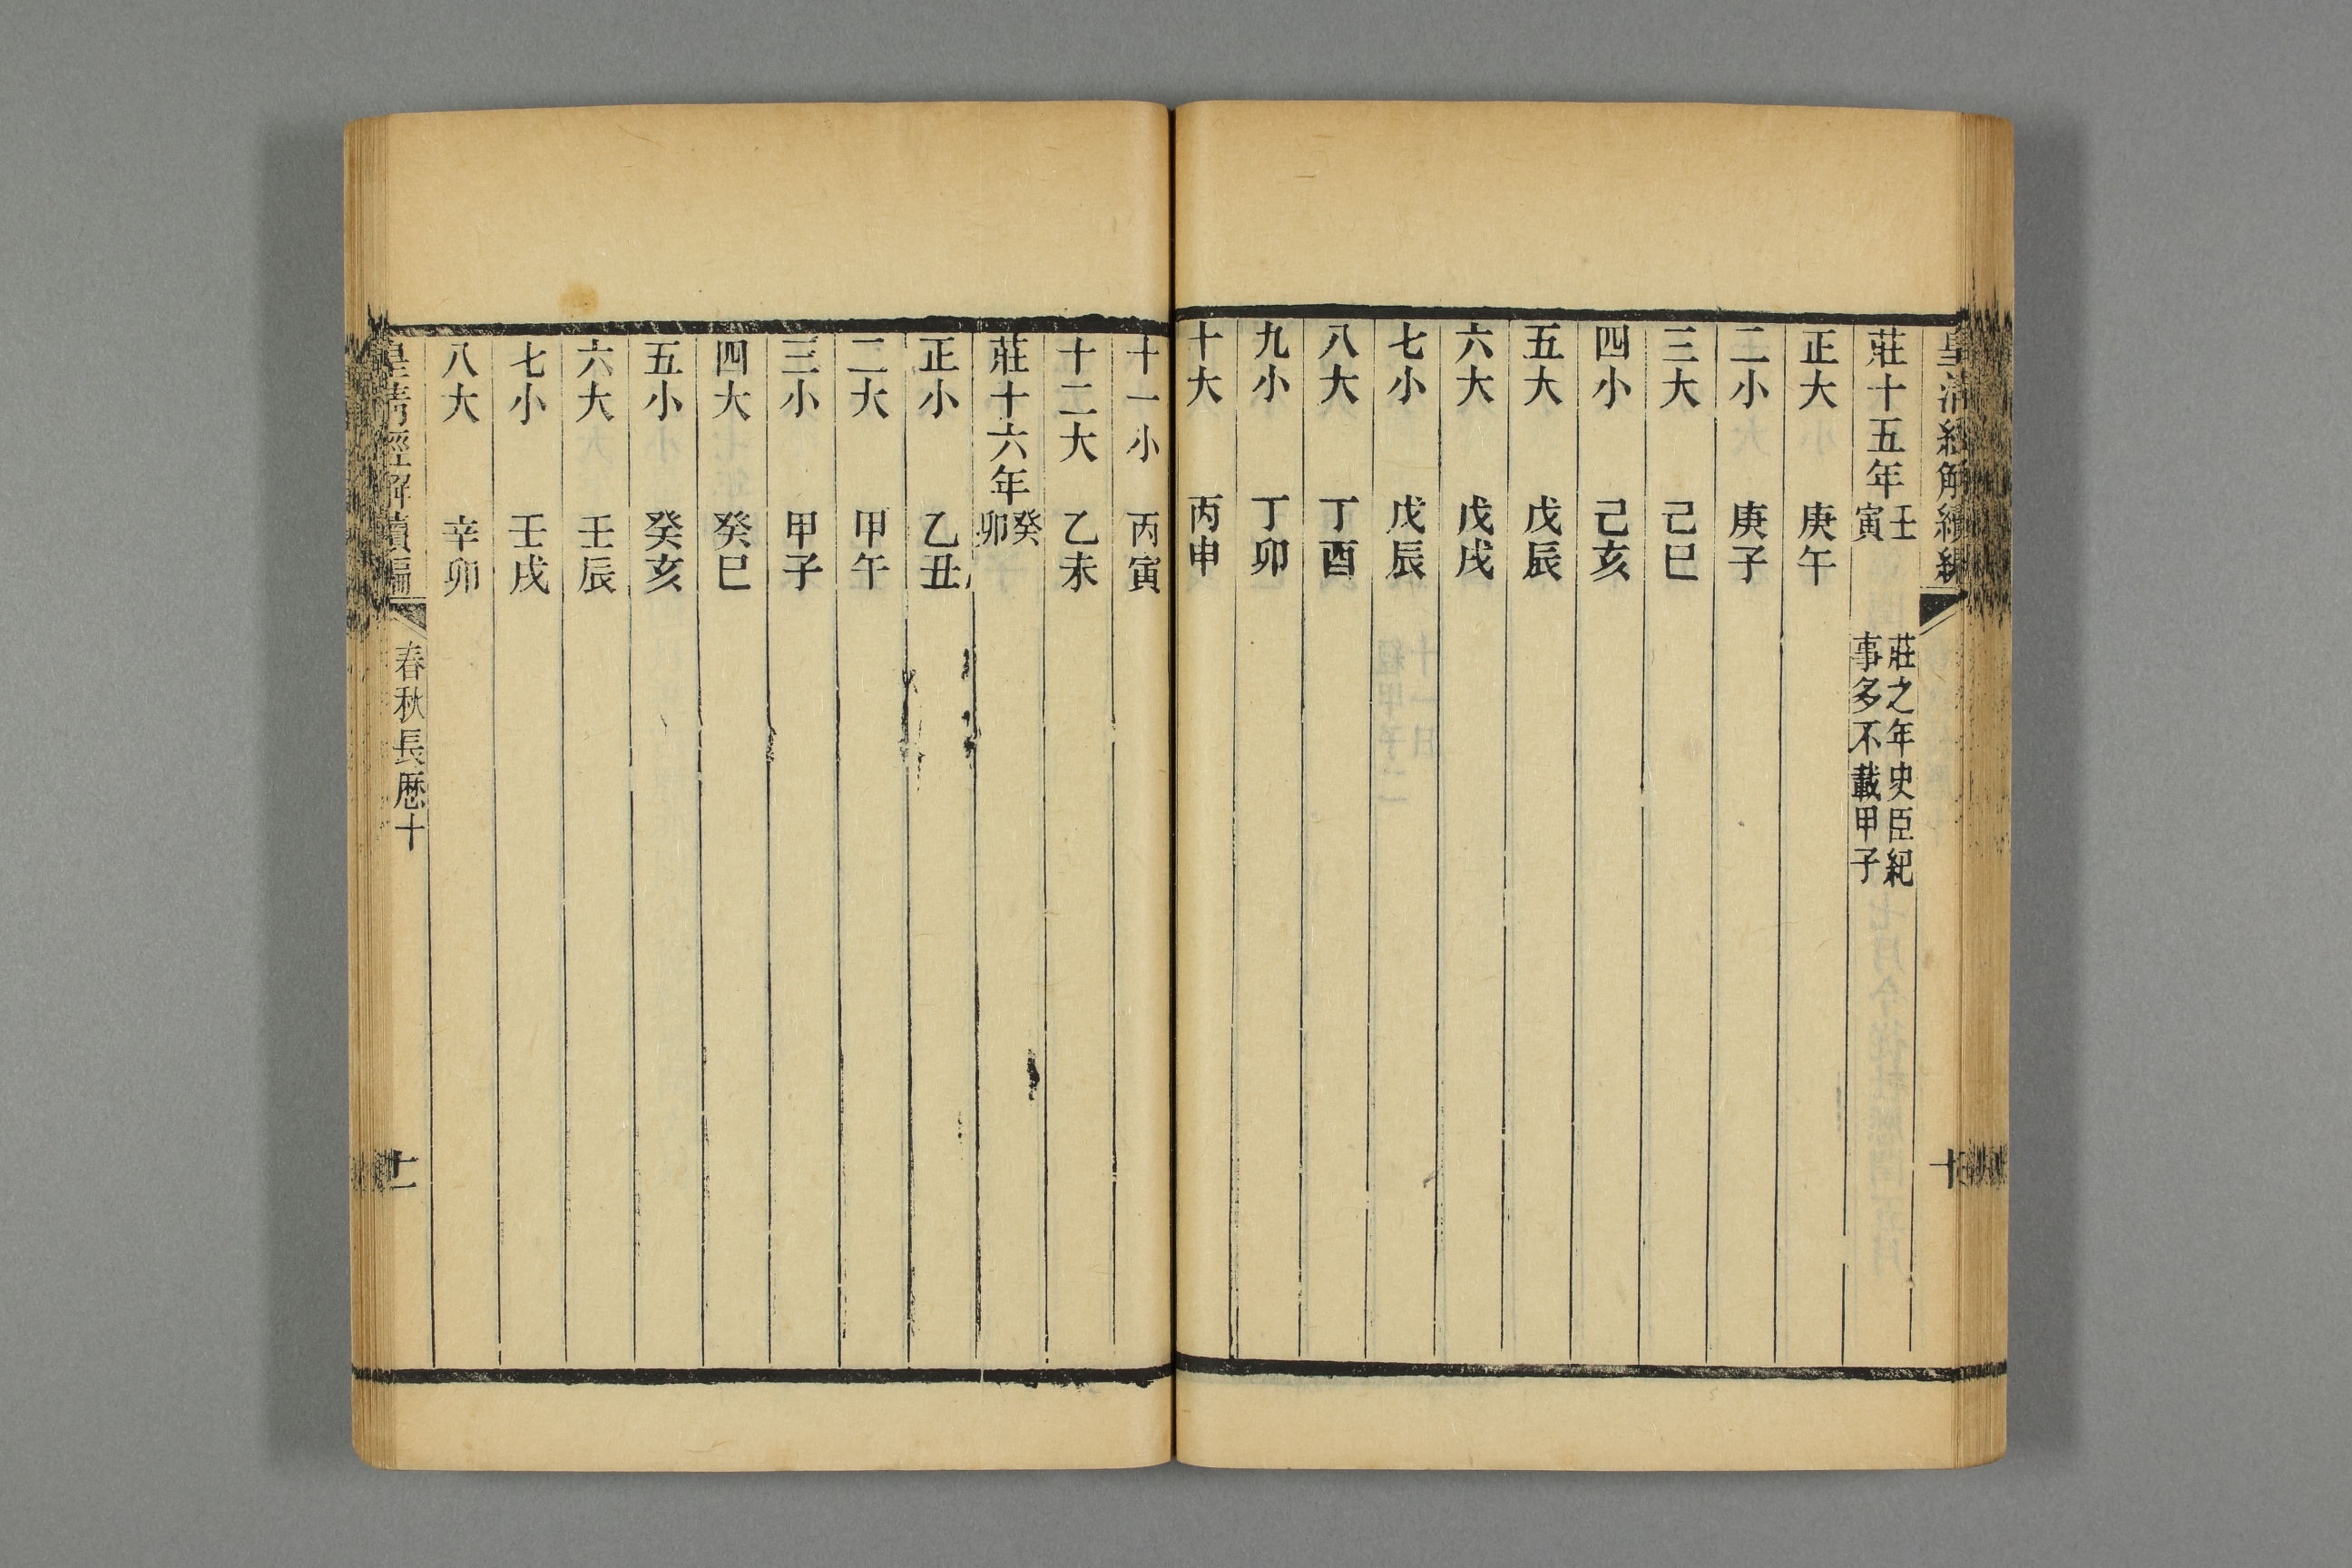 皇清經解續編
十
莊十五年壬寅 莊之年史臣紀事多不載甲子
正大 庚午
二小 庚子
三大 己巳
四小 己亥
五大 戊辰
六大 戊戌
七小 戊辰
八大 丁酉
九小 丁卯
十大 丙申
十一小 丙寅
十二大 乙未
莊十六年癸卯
正小 乙丑
二大 甲午
三小 甲子
四大 癸巳
五小 癸亥
六大 壬辰
七小 壬戌
八大 辛卯
皇清經解續編 春秋長歷十
十一